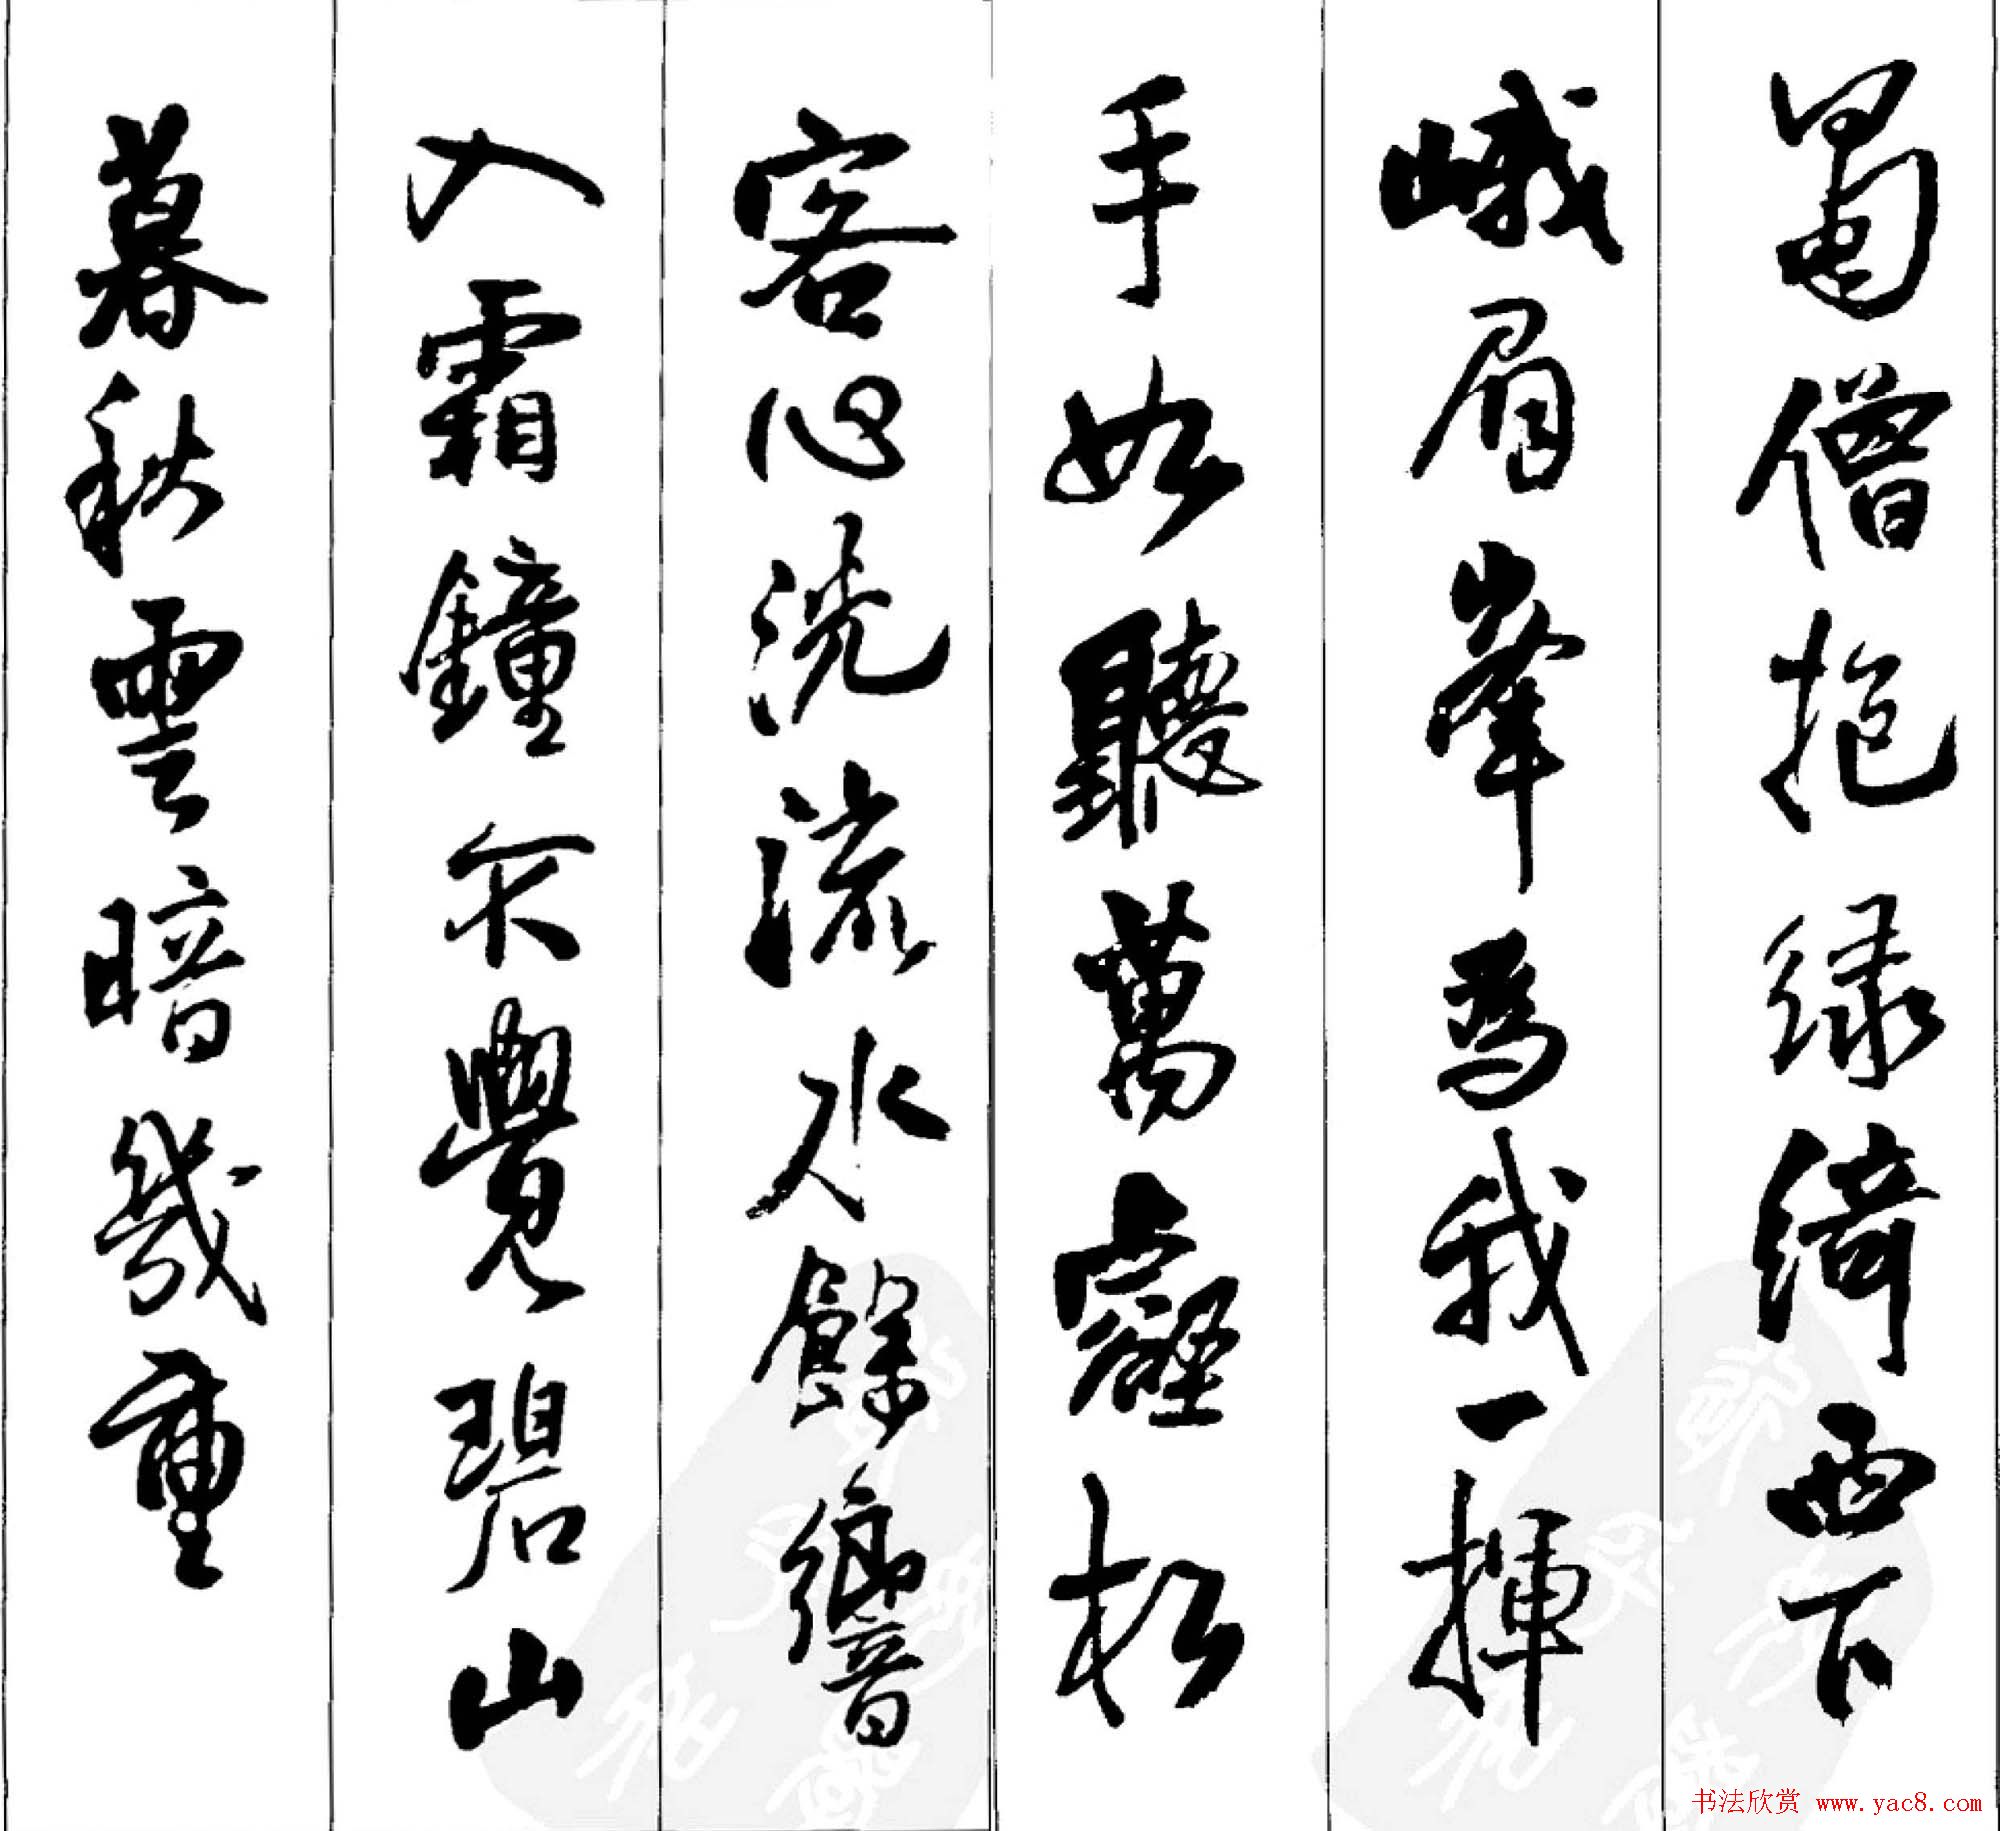 蜀僧抱绿绮西下
峨眉峯為我一揮
手如聽萬壑松
客心洗流水餘響
入霜鐘不覺碧山
暮秋雲暗幾重
书法欣赏 www.yac8.com